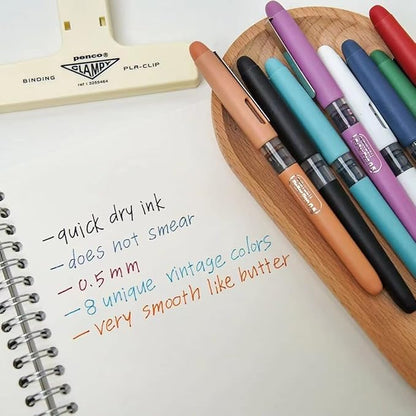 penco
BINDING CLAMPY PLA-CLIP
- quick dry ink
- does not smear
- 0.5 mm
- 8 unique vintage colors
- very smooth like butter